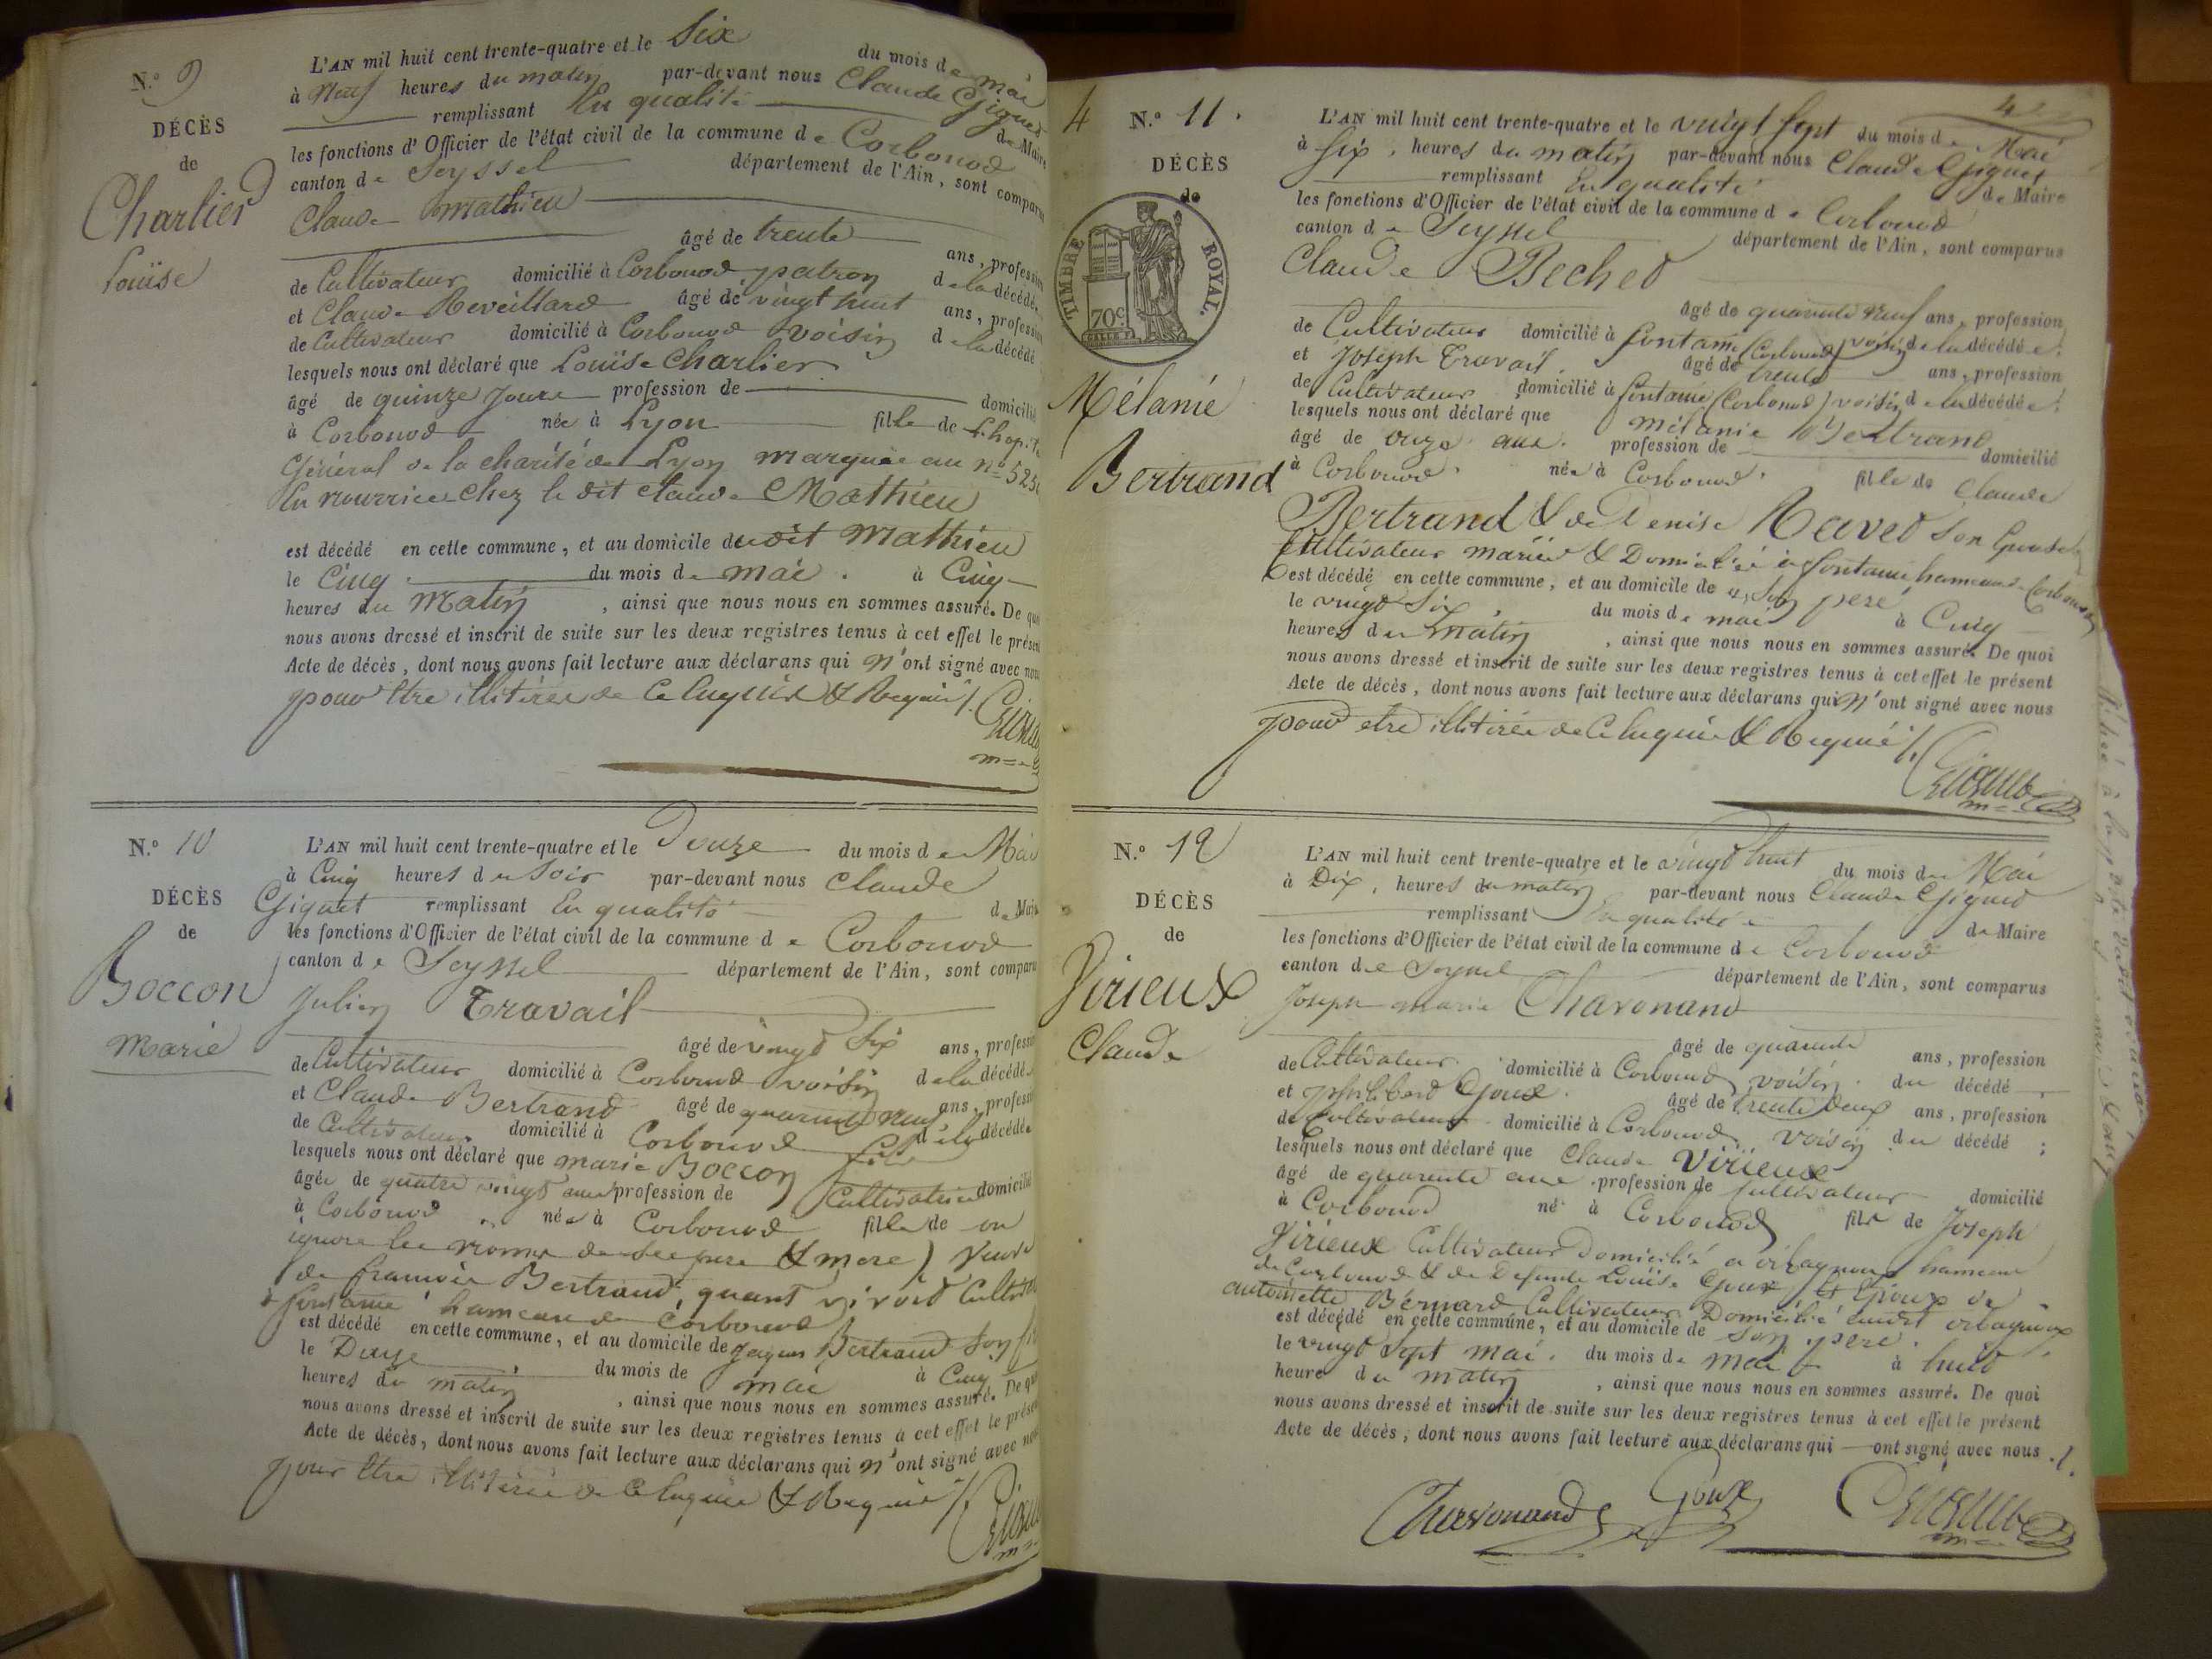 N.º 9
DÉCÈS
de
Charlier
Louise
L'AN mil huit cent trente-quatre et le Six du mois de mai
à Neuf heures du matin par-devant nous Claude Giguet
remplissant En qualité de Maire
les fonctions d'Officier de l'état civil de la commune de Corbonod
canton de Seyssel département de l'Ain, sont comparus
Claude Mathieu
âgé de trente ans, profession
de Cultivateur domicilié à Corbonod patron de la décédée
et Claude Reveillard âgé de vingt huit ans, profession
de Cultivateur domicilié à Corbonod voisin de la décédé
lesquels nous ont déclaré que Louise Charlier
âgé de quinze Jours profession de domicilié
à Corbonod née à Lyon fille de L'hopit
Général de la charité de Lyon marquée au nº 525
En nourrice Chez le dit Claude Mathieu
est décédé en cette commune, et au domicile dudit Mathieu
le Cinq du mois de mai à Cinq
heures du Matin, ainsi que nous nous en sommes assuré. De quoi
nous avons dressé et inscrit de suite sur les deux registres tenus à cet effet le présent
Acte de décès, dont nous avons fait lecture aux déclarans qui n'ont signé avec nous
pour être illitérée de Ce Enquis & Requis /.
N.º 10
DÉCÈS
de
Boccon
Marie
L'AN mil huit cent trente-quatre et le Douze du mois de Mai
à Cinq heures du Soir par-devant nous Claude
Giguet remplissant En qualité de Maire
les fonctions d'Officier de l'état civil de la commune de Corbonod
canton de Seyssel département de l'Ain, sont comparus
Julien Travail
âgé de vingt Six ans, profession
de Cultivateur domicilié à Corbonod voisin de la décédé
et Claude Bertrand âgé de quarante neuf ans, profession
de Cultivateur domicilié à Corbonod fils de la décédée
lesquels nous ont déclaré que Marie Boccon
âgée de quatre vingt ans profession de Cultivatrice domicilié
à Corbonod née à Corbonod fille de on
ignore les noms de ses pere & mere) Veuve
de francois Bertrand quant vivoit Cultivat
à fontaine hameau de Corbonod
est décédé en cette commune, et au domicile de Jaques Bertrand Son fils
le Douze du mois de mai à Cinq
heures du matin, ainsi que nous nous en sommes assuré. De quoi
nous avons dressé et inscrit de suite sur les deux registres tenus à cet effet le présent
Acte de décès, dont nous avons fait lecture aux déclarans qui n'ont signé avec nous
pour être illitérée de Ce Enquis & Requis /.
4
N.º 11.
DÉCÈS
de
TIMBRE ROYAL.
70 c
Mélanie
Bertrand
L'AN mil huit cent trente-quatre et le vingt Sept du mois de Mai
à Six, heures du matin par-devant nous Claude Giguet
remplissant En qualité de Maire
les fonctions d'Officier de l'état civil de la commune de Corbonod
canton de Seyssel département de l'Ain, sont comparus
Claude Bechet
âgé de quarante neuf ans, profession
de Cultivateur domicilié à fontaine (Corbonod) voisin de la décédée;
et Joseph Travail. âgé de trente ans, profession
de Cultivateur domicilié à fontaine (Corbonod) voisin de la décédée;
lesquels nous ont déclaré que mélanie Bertrand
âgé de onze ans. profession de domicilié
à Corbonod. née à Corbonod. fille de Claude
Bertrand & de Denise Ravet Son Epouse
Cultivateurs mariés & Domicilié à fontaine hameau de Corbonod
est décédé en cette commune, et au domicile de Son pere
le vingt Six, du mois de mai à Cinq
heures du matin, ainsi que nous nous en sommes assuré. De quoi
nous avons dressé et inscrit de suite sur les deux registres tenus à cet effet le présent
Acte de décès, dont nous avons fait lecture aux déclarans qui n'ont signé avec nous
pour etre illitérée de Ce Enquis & Requis /.
N.º 12
DÉCÈS
de
Virieux
Claude
L'AN mil huit cent trente-quatre et le vingt huit du mois de Mai
à Dix, heures du matin par-devant nous Claude Giguet
remplissant En qualité de Maire
les fonctions d'Officier de l'état civil de la commune de Corbonod
canton de Seyssel département de l'Ain, sont comparus
Joseph marie Charvonand
âgé de quarante ans, profession
de Cultivateur domicilié à Corbonod voisin. du décédé
et philibert Goux. âgé de trente deux ans, profession
de Cultivateur domicilié à Corbonod, voisin du décédé;
lesquels nous ont déclaré que Claude Virieux
âgé de quarante ans. profession de Cultivateur domicilié
à Corbonod né à Corbonod fils de Joseph
Virieux Cultivateur Domicilié a orbagnoux hameau
de Corbonod & de Defunte Louise Goux, Et Epoux de
antoinette Bernard Cultivateurs Domicilié audit orbagnoux
est décédé en cette commune, et au domicile de Son pere.
le vingt Sept mai. du mois de mai à huit
heure du matin, ainsi que nous nous en sommes assuré. De quoi
nous avons dressé et inscrit de suite sur les deux registres tenus à cet effet le présent
Acte de décès, dont nous avons fait lecture aux déclarans qui ont signé avec nous ./.
Charvonand Goux